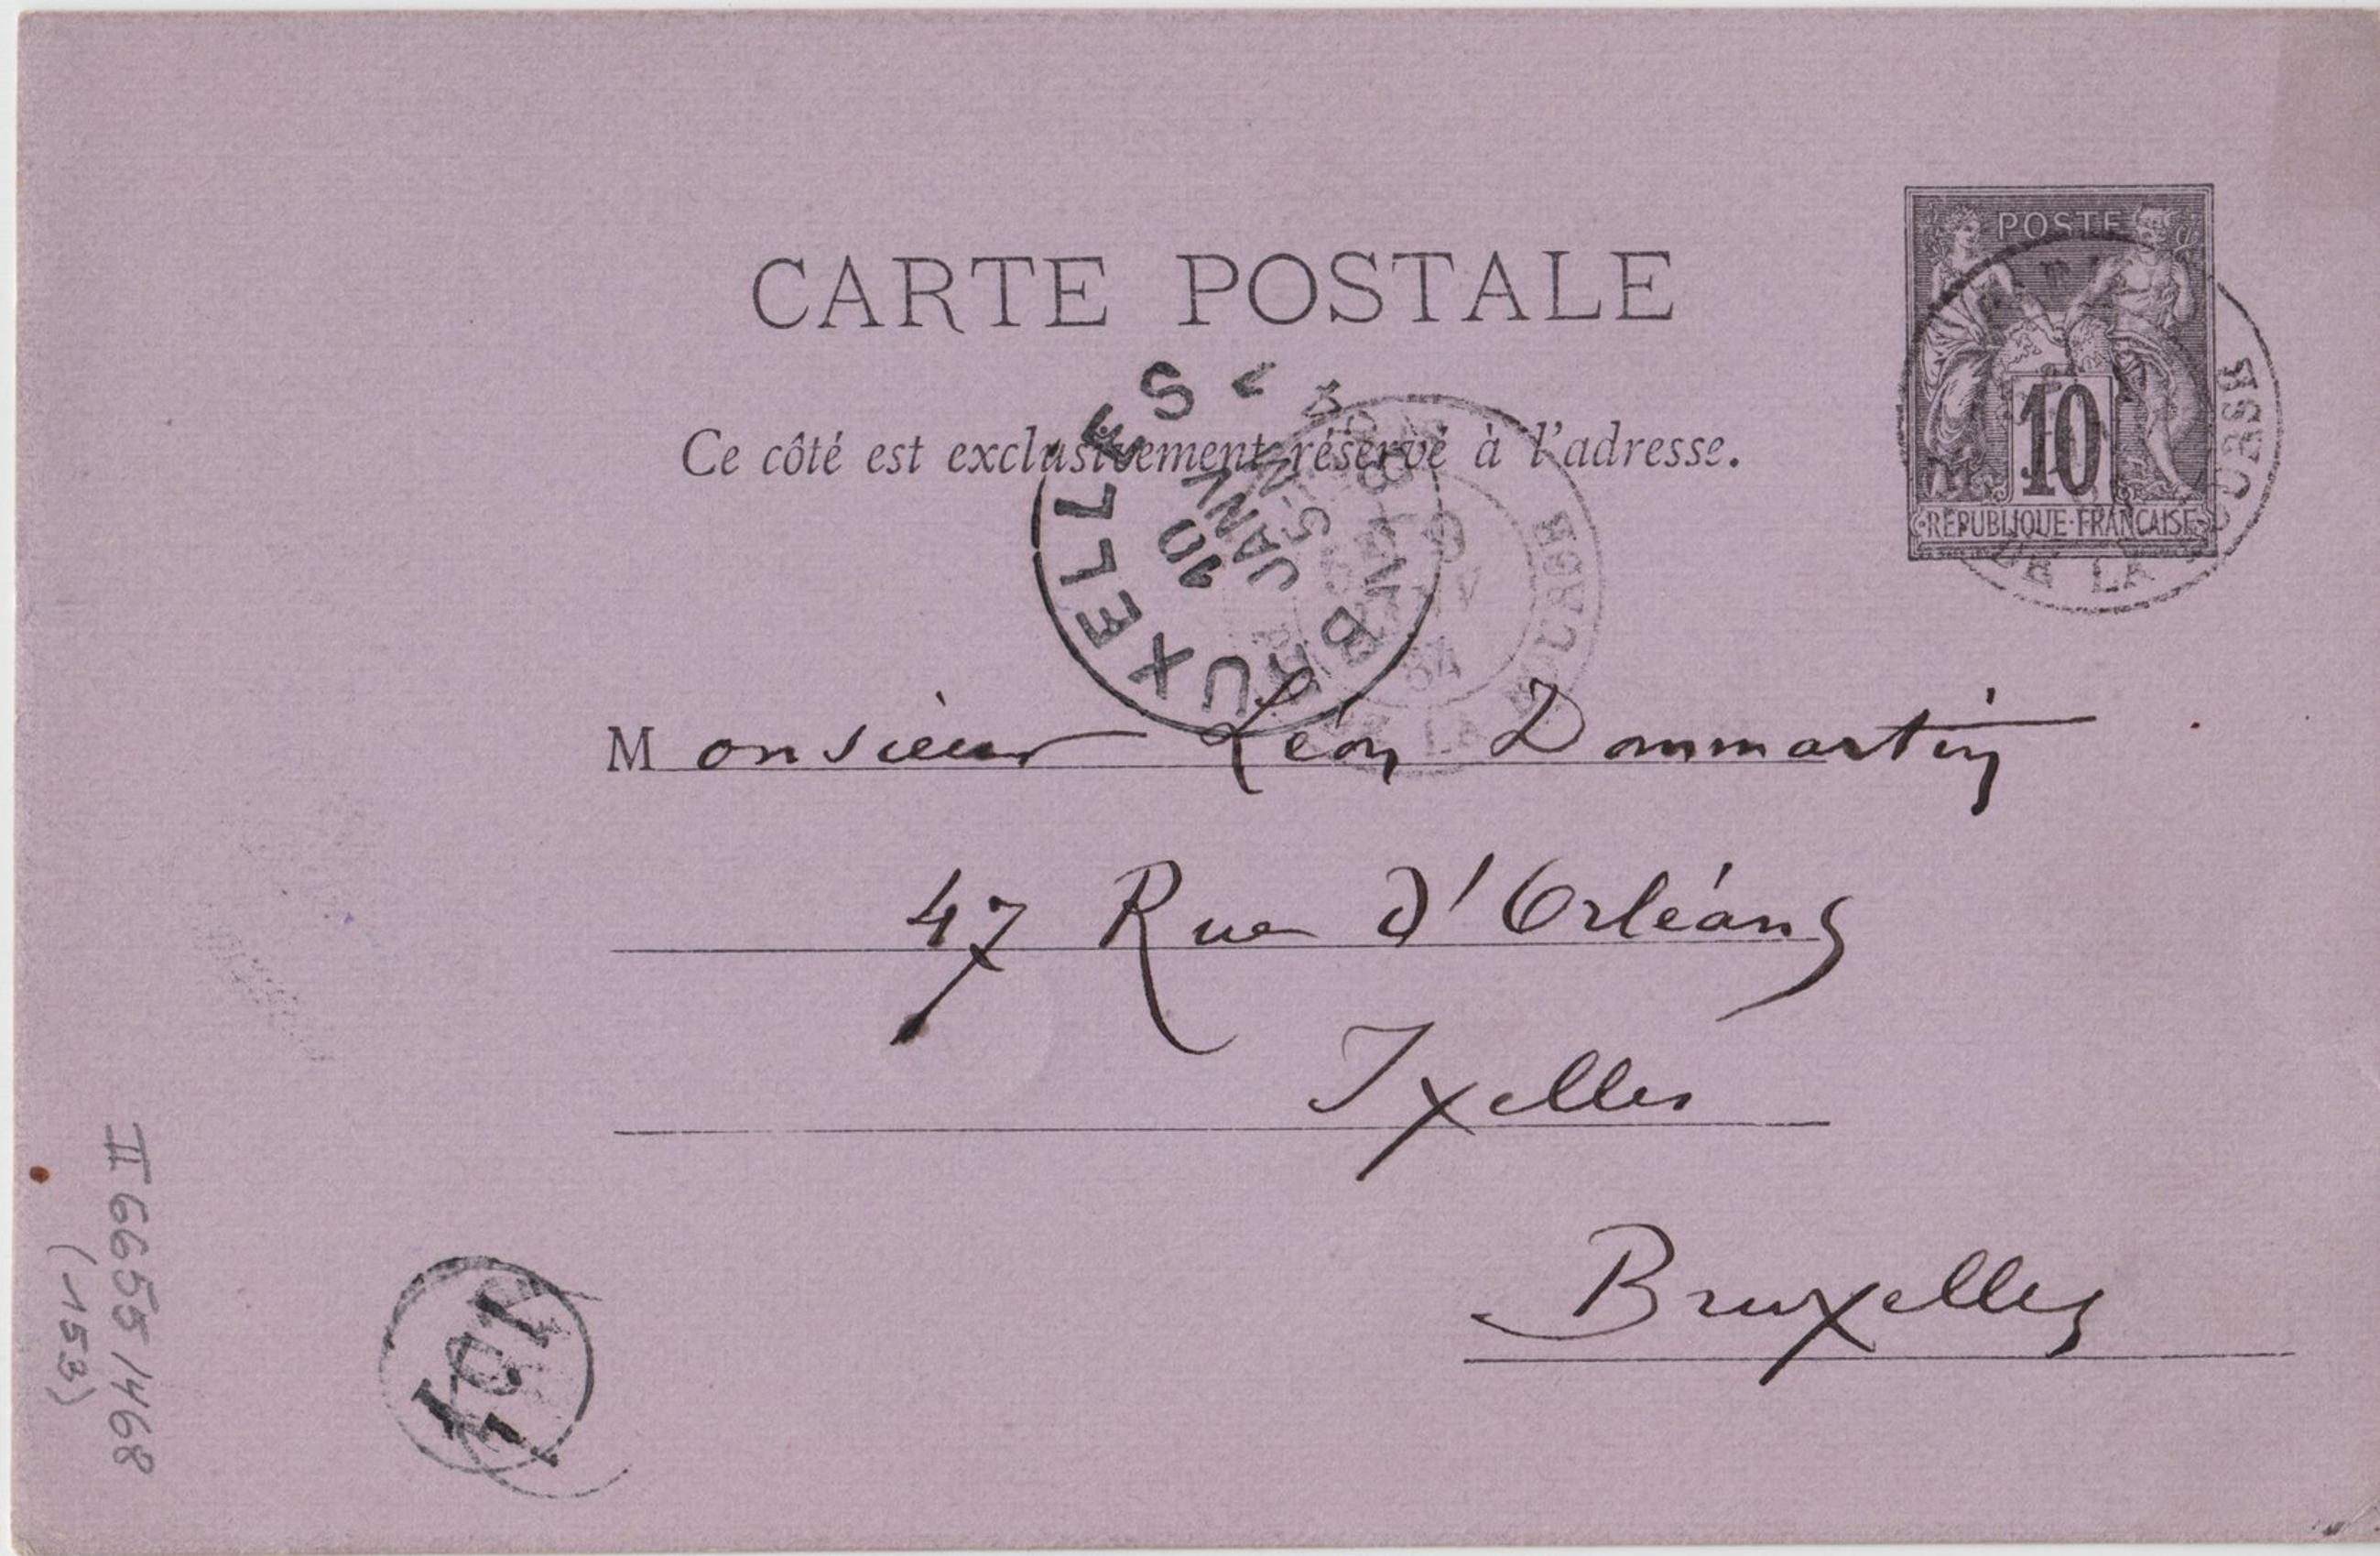 POSTE
CARTE POSTALE
10
RÉPUBLIQUE·FRANÇAISE
Ce côté est exclusivement réservé à l'adresse.
BRUXELLES
10
JANV
5-
LA BOURSE
84
DE LA BOURSE
Monsieur Léon Dommartin
47 Rue d'Orléans
Ixelles
Bruxelles
II 6655/468
(153)